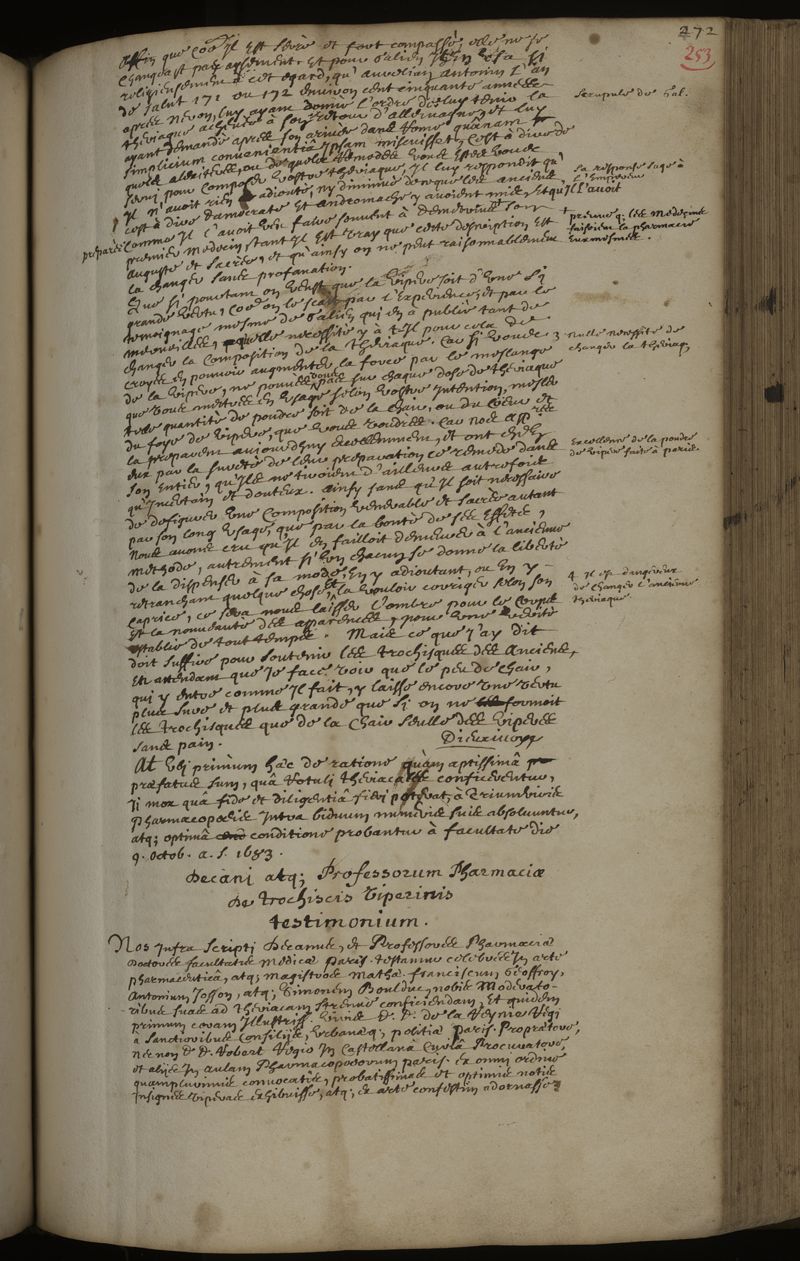 272
253
Affin que coe Il est seure et fort compassé, elle ne se
changeast pas aysement. Et pour Galien Il en usa si
religieusement à cet egard, qu' aurelian Antonin l'an
de salut 171 ou 172 environ cent cinquante années
apres Neron, luy ayant donné l'ordre de luy tenir la
theriaque à son retour d'allemagne, et luy
ayant demandé apres son arrivée dans Rome quânam
simplicium convenientiâ ipsam miscuisset, C'est à dire de
quelle ou de quelle methode vous estes vous
servi pour composer vostre theriaque, Il luy respondit qu'
Il n'avoit rien adiouté, ny diminué de ce que les anciens,
c'est à dire Damocrate et Andromache y avoient mis, et qu'Il l'avoit
preparée comme Il l'avoit veu faire souvent à Demetrius son
premier medecin, tant Il est vray que cette description est
auguste et sacrée, et qu'ainsy on ne peut raisonnablement
la changer sans profanation.
Scrupule de Gal.
Sa response sage à
l'Empereur
preuve q. les medecins
faisoient la pharmacie
eux mesmes.
Que si pourtant on veut que la vipere soit d'une si
grande vertu, coe on le scait par l'Experience, et par le
temoignage mesme de Galien qui en a publié tant de
merveilles, quelle necessité y à t'Il pour cela de
changer la Composition de la Theriaque. Car si vous
croyez en pouvoir augmenter la force par le meslange
de la vipere, ne pouvez vous pas sur chaque dose de theriaque
que vous mettrez en usage selon vostre Intention, mesler
telle quantité de poudre soit de la chair, ou du coeur et
du foye de vipere, que vous voudrez. Car nos app.res
la preparent aujourdhuy excellemment, et ont chez
eux par la sureté de leur preparation ce remede dans
son entier, qu'Ils ne tiroient d'ailleurs autrefois
qu'Incertain et douteux. Ainsy sans qu'Il soit necessaire
de defigurer une Composition venerable et sacrée autant
par son long usage, que par la bonté de ses effets,
Nous avons cru qu'Il en failloit demeurer à l'ancienne
methode, autrement si l'on chacun se donne la liberté
de la dispenser à sa mode, En y adioutant, ou En y
retranchant quelque chose, et la vouloir corriger selon son
caprice, ce sera nous laisser l'ombre pour le corps
Et la nouveauté des apparences, pour une verité
establie de tout temps. Mais ce que j'ay dit
doit suffire pour soutenir les trochisques des Anciens,
En attendant que Je face voir que le peu de chair,
qui y entre comme Il fait, y laisse encore une vertu
plus sure et plus grande que si on ne formoit
les trochisques que de la chair seulle des viperes
sans pain.
3 nulle necessité de
changer la theriaq.
Excellence de la poudre
de vipere faite à paris.
4 Il est dangereux
de changer l'ancienne
theriaque.
At ubi primùm hâc de ratione quàm aptissimâ
præfatus sum, quâ rotuli theriacales conficerentur,
Ii mox quâ fide et diligentiâ fieri poterat, à Triumviris
Pharmacopoeis Intra biduum numeris suis absoluuntur,
atq; optimâ conditione probantur à facultate die
9. Octob. a. s. 1683.
Decani atq; Professorum Pharmaciæ
de trochiscis viperinis
testimonium.
Nos Infra scripti Decanus, et Professores Pharmaciæ
Doctores facultatis Medicæ Paris. testamur celebres In arte
pharmaceuticâ, atq; magistros Mathæ. franciscum Geoffroy,
Antonium Josson, atq; Simonem Boulduc, nobis Moderato-
-ribus suas ad theriacam strenue conficiendam, Et quidem
primùm coram Illustriss. viris D. D. de la Reynie Regi
a Sanctioribus Consiliis, urbanæq; politiæ Paris. Propraetore,
nec non D. D. Robert Regio In Castellanâ Curiâ Procuratore,
et aliis In aulam Pharmacopoeorum paris. ex omni ordine
quamplurimis convocatis, probatissimas et optimis notis
Insignes viperas exhibuisse, atq; ex arte confestim adornasse